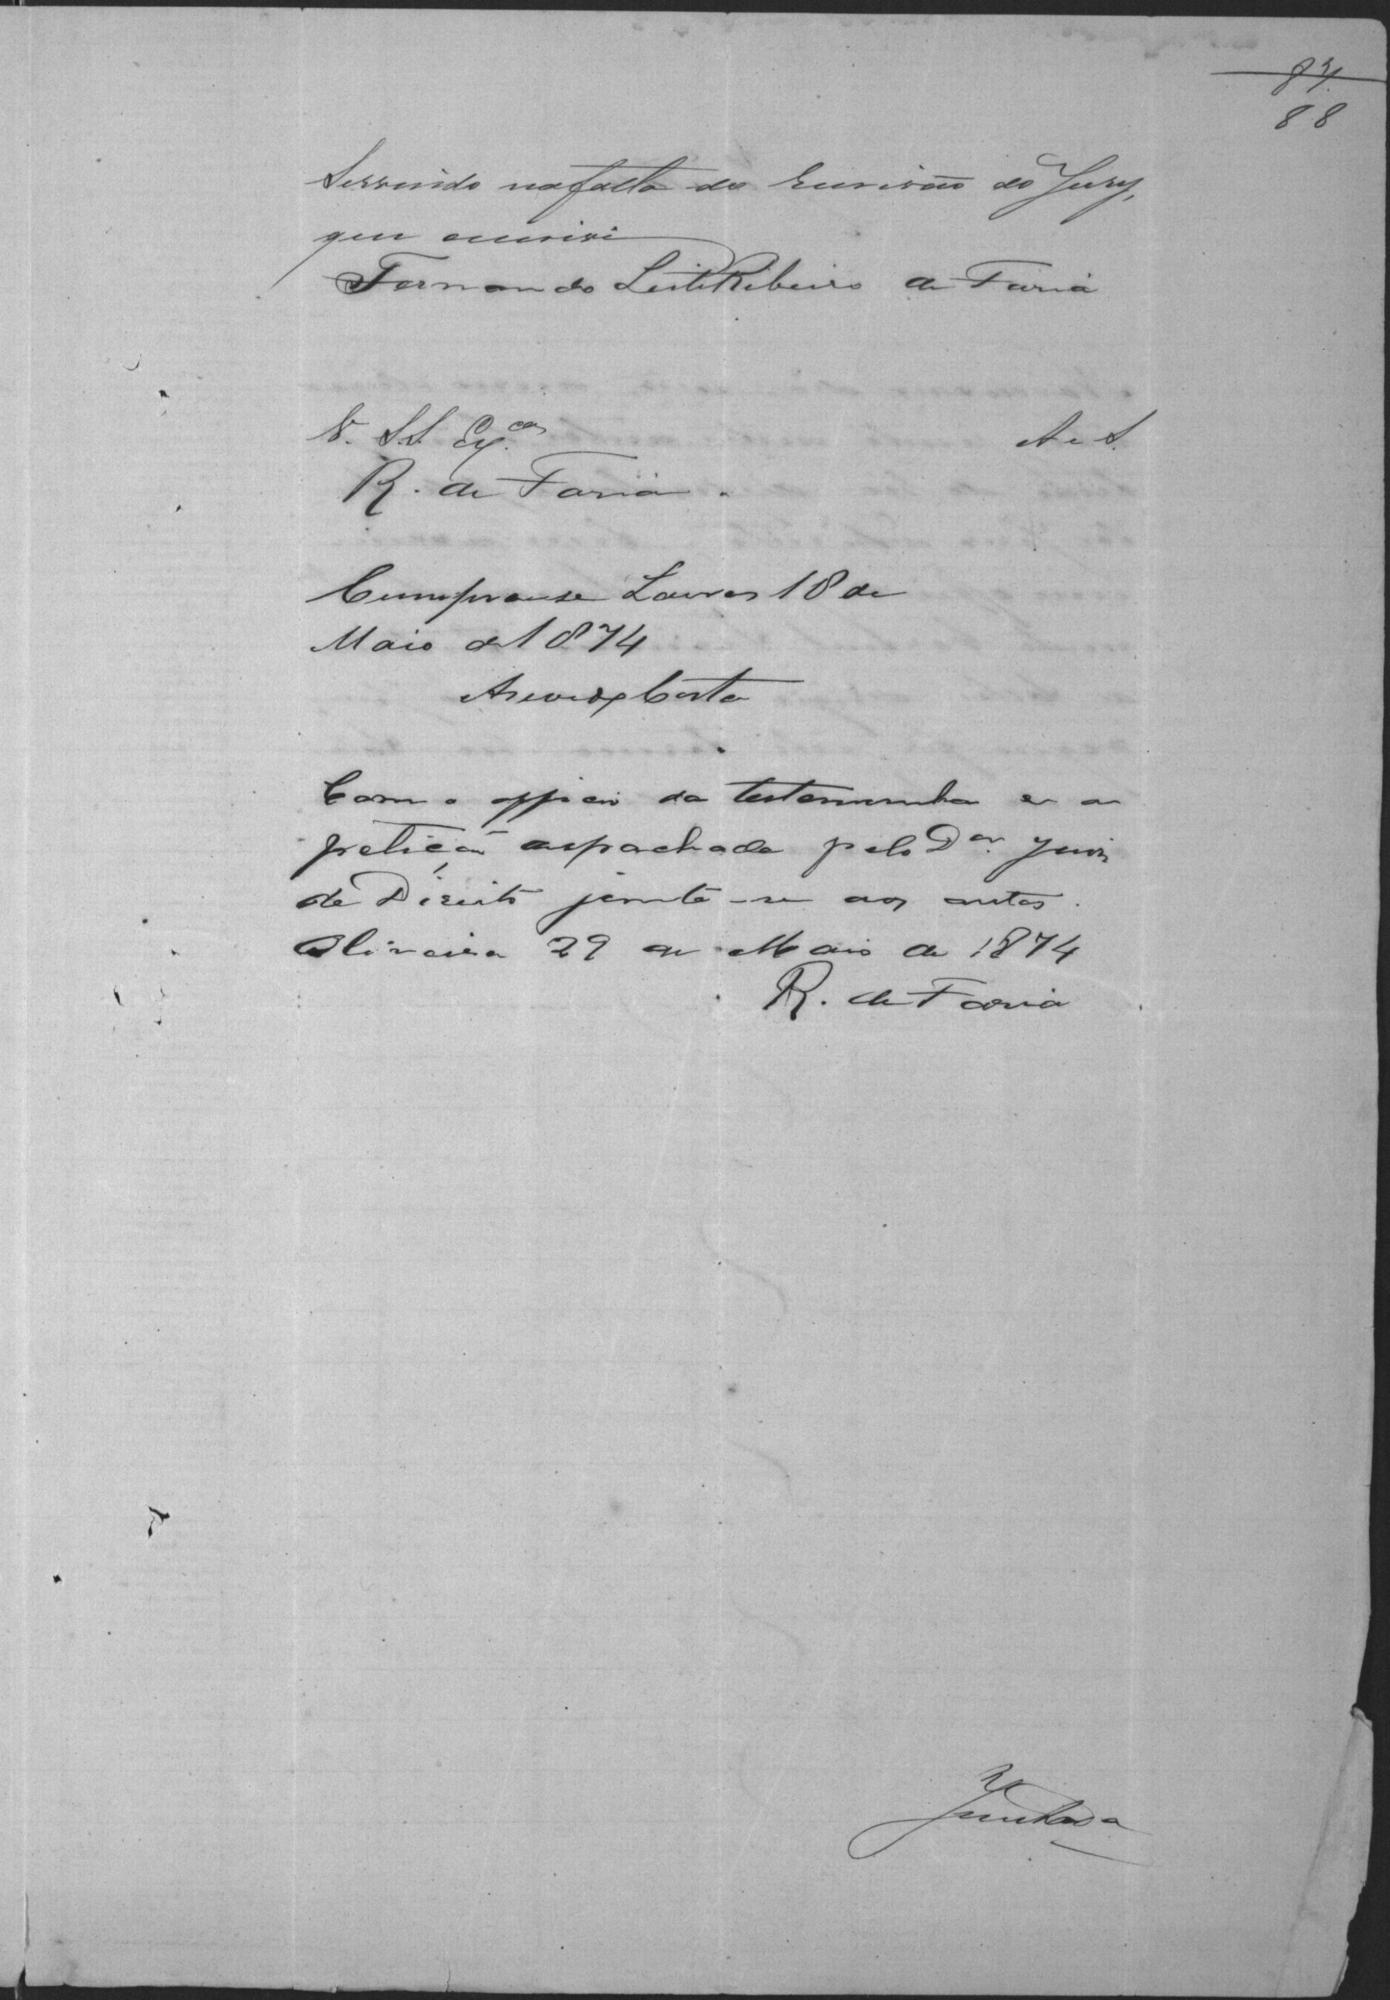 84
88
Servindo na falta do Escrivão do Jury,
que escrevi
Fernando Leite Ribeiro de Faria
V. S.S. Ex.cas
A e S.
R. de Faria.
Cumpra-se Lavras 18 de
Maio de 1874
Azevedo Costa
Com o officio da testemunha e a
petição despachada pelo Dor. Juiz
de Direito junte-se aos autos.
Oliveira 29 de Maio de 1874
R. de Faria
Juntada